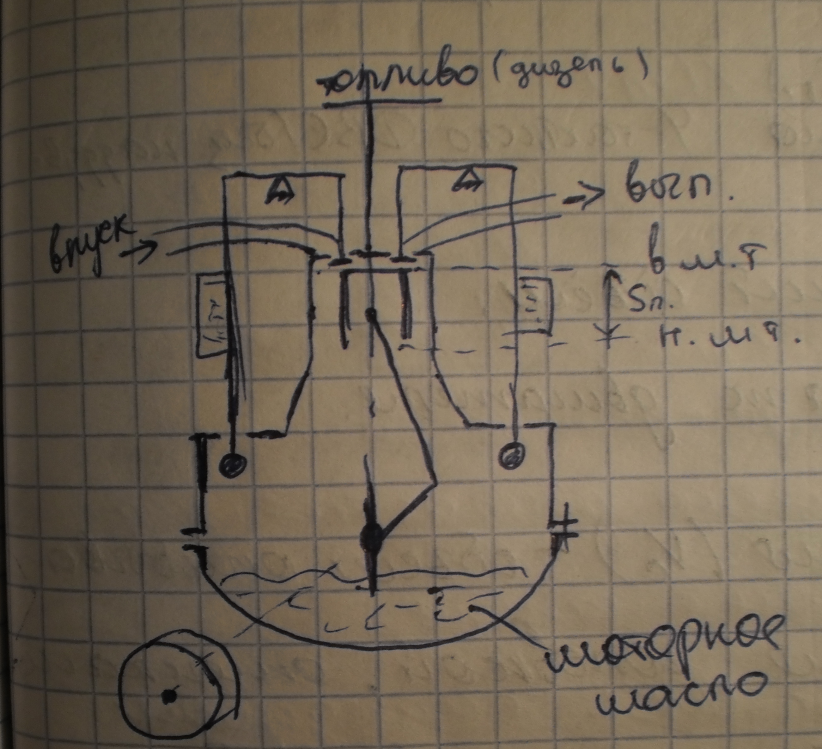 топливо (дизель)
впуск
вып.
в.м.т
Sп.
н.мт.
моторное
масло